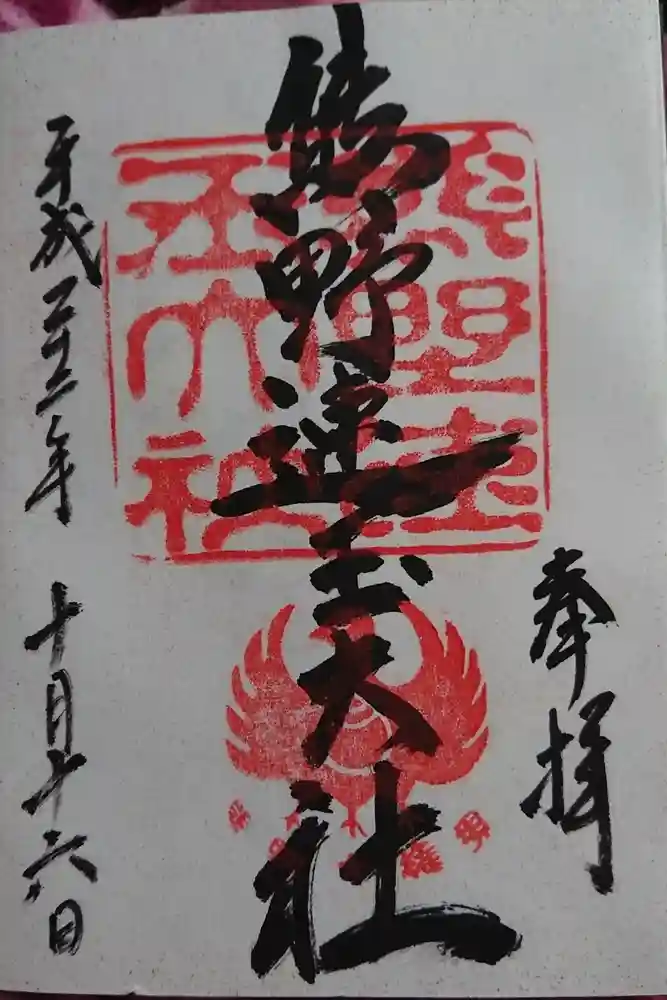 奉拝
熊野速玉大社
熊野速玉大社
平成二十二年 十月十六日